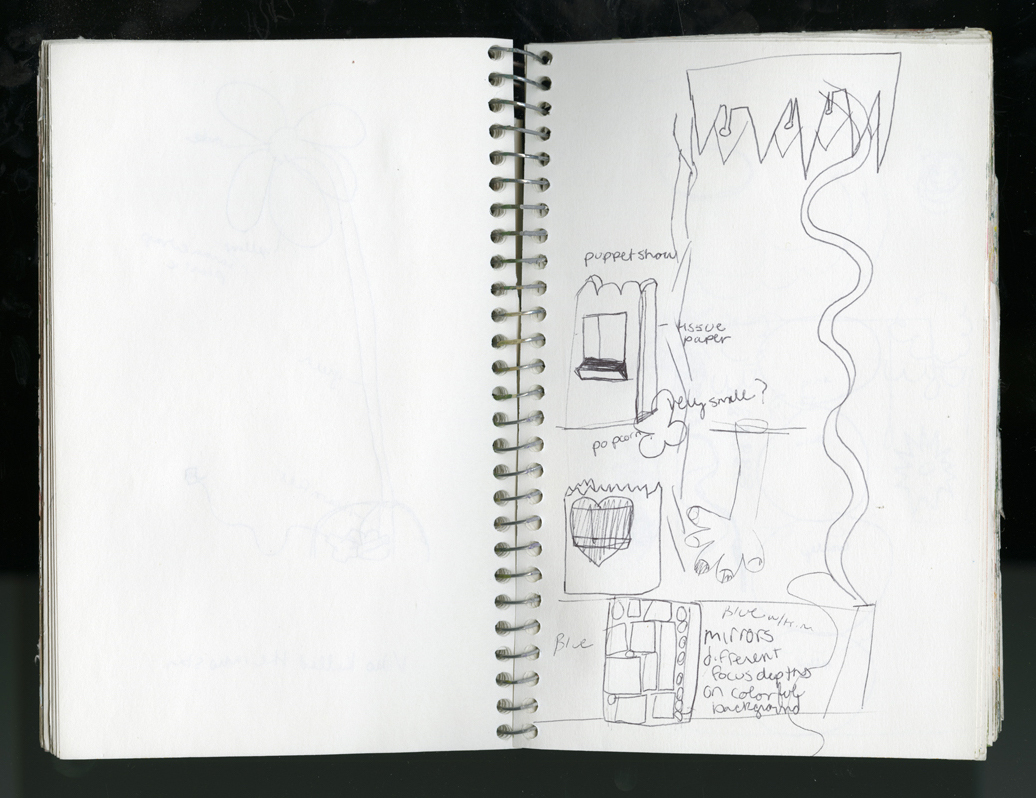 puppet show
tissue
paper
very small?
popcorn
Blue
Blue w/trim
mirrors
different
focus depths
on colorful
background